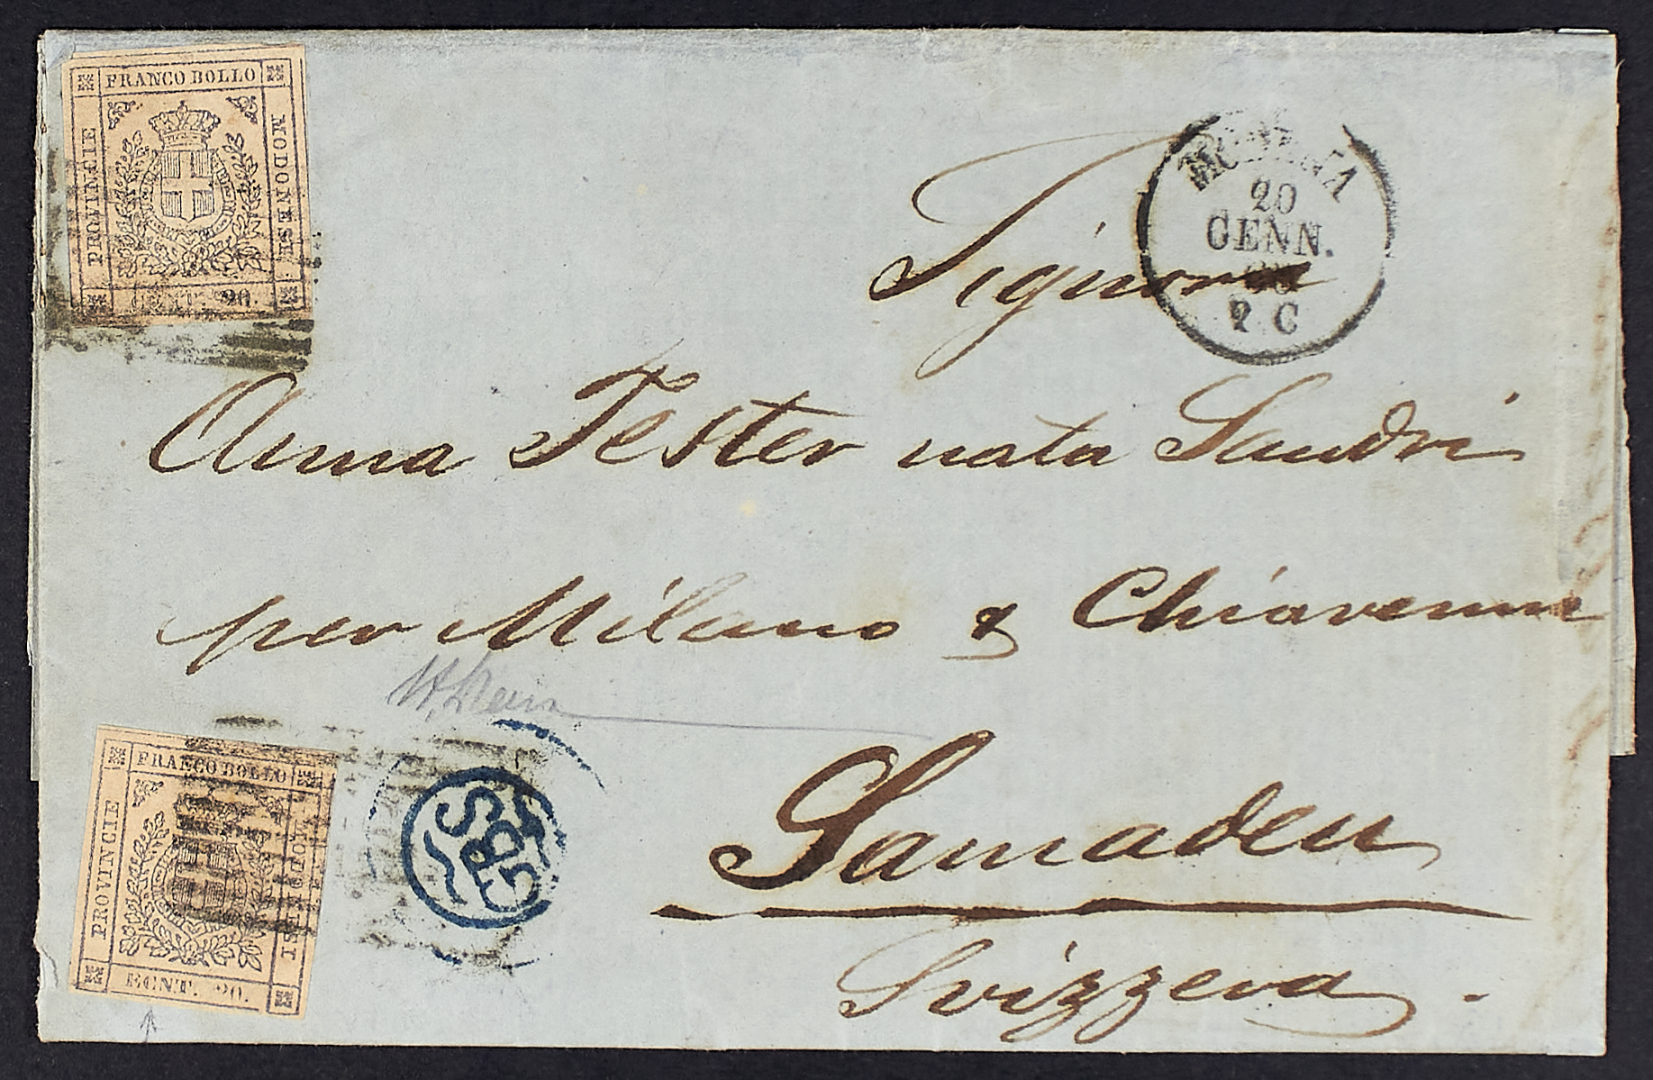 FRANCO BOLLO
PROVINCIE
MODONESI
CENT. 20.
MODENA
20
GENN.
2 C
Signora
Anna Tester nata Sandri
per Milano & Chiavenna
Samaden
Svizzera.
FRANCO BOLLO
PROVINCIE
MODONESI
ECNT. 20.